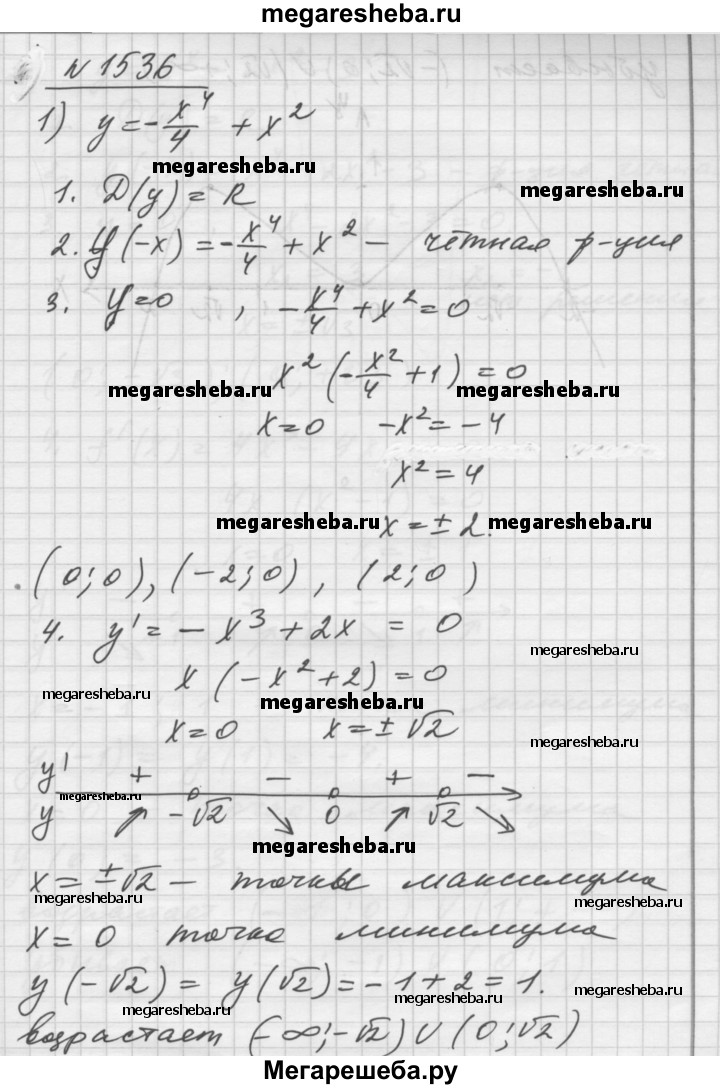 megaresheba.ru
N 1536
1) y = -x⁴/4 + x²
megaresheba.ru
1. D(y) = R
megaresheba.ru
2. y(-x) = -x⁴/4 + x² — чётная ф-ция
3. y=0, -x⁴/4 + x² = 0
x²(-x²/4 + 1) = 0
megaresheba.ru megaresheba.ru
x=0 -x² = -4
x² = 4
megaresheba.ru x = ± 2. megaresheba.ru
(0;0), (-2;0), (2;0)
4. y' = -x³ + 2x = 0
megaresheba.ru
x(-x² + 2) = 0
megaresheba.ru megaresheba.ru
x=0 x=±√2
megaresheba.ru
y' + — + —
megaresheba.ru
y ↗ -√2 ↘ 0 ↗ √2 ↘
megaresheba.ru
x = ±√2 — точки максимума
megaresheba.ru megaresheba.ru
x = 0 точка минимума
y(-√2) = y(√2) = -1+2 = 1.
megaresheba.ru megaresheba.ru megaresheba.ru
возрастает (-∞;-√2) ∪ (0;√2)
Мегарешеба.ру